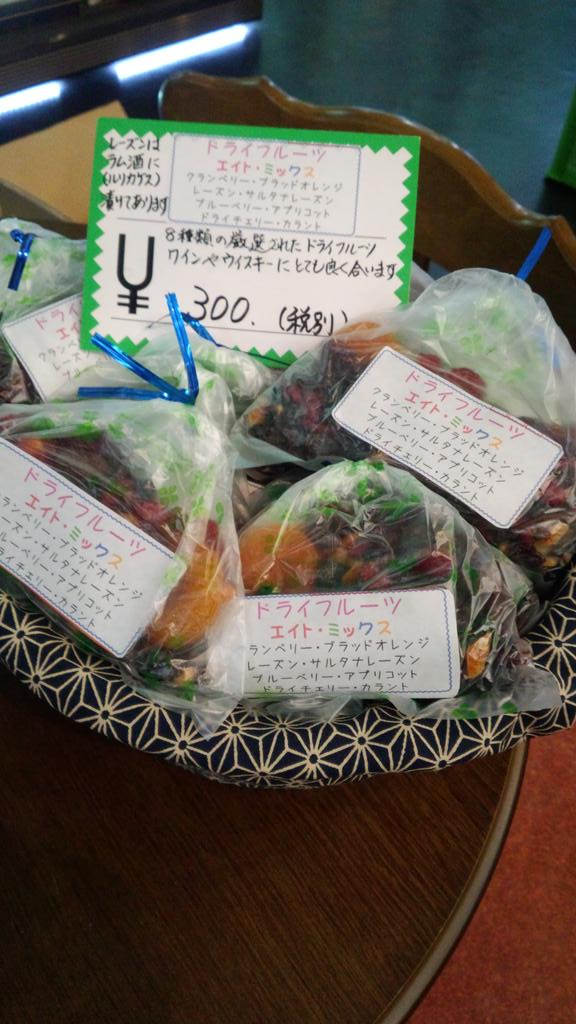 レーズンは
ラム酒に
漬けてあります
ドライフルーツ
エイト・ミックス
クランベリー・ブラッドオレンジ
レーズン・サルタナレーズン
ブルーベリー・アプリコット
ドライチェリー・カラント
8種類の厳選されたドライフルーツ
ワインやウイスキーにとても良く合います
¥300.(税別)
ドライフルーツ
エイト・ミックス
クランベリー・ブラッドオレンジ
レーズン・サルタナレーズン
ブルーベリー・アプリコット
ドライチェリー・カラント
ドライフルーツ
エイト・ミックス
クランベリー・ブラッドオレンジ
レーズン・サルタナレーズン
ブルーベリー・アプリコット
ドライチェリー・カラント
ドライフルーツ
エイト・ミックス
ランベリー・ブラッドオレンジ
レーズン・サルタナレーズン
ブルーベリー・アプリコット
ドライチェリー・カラント